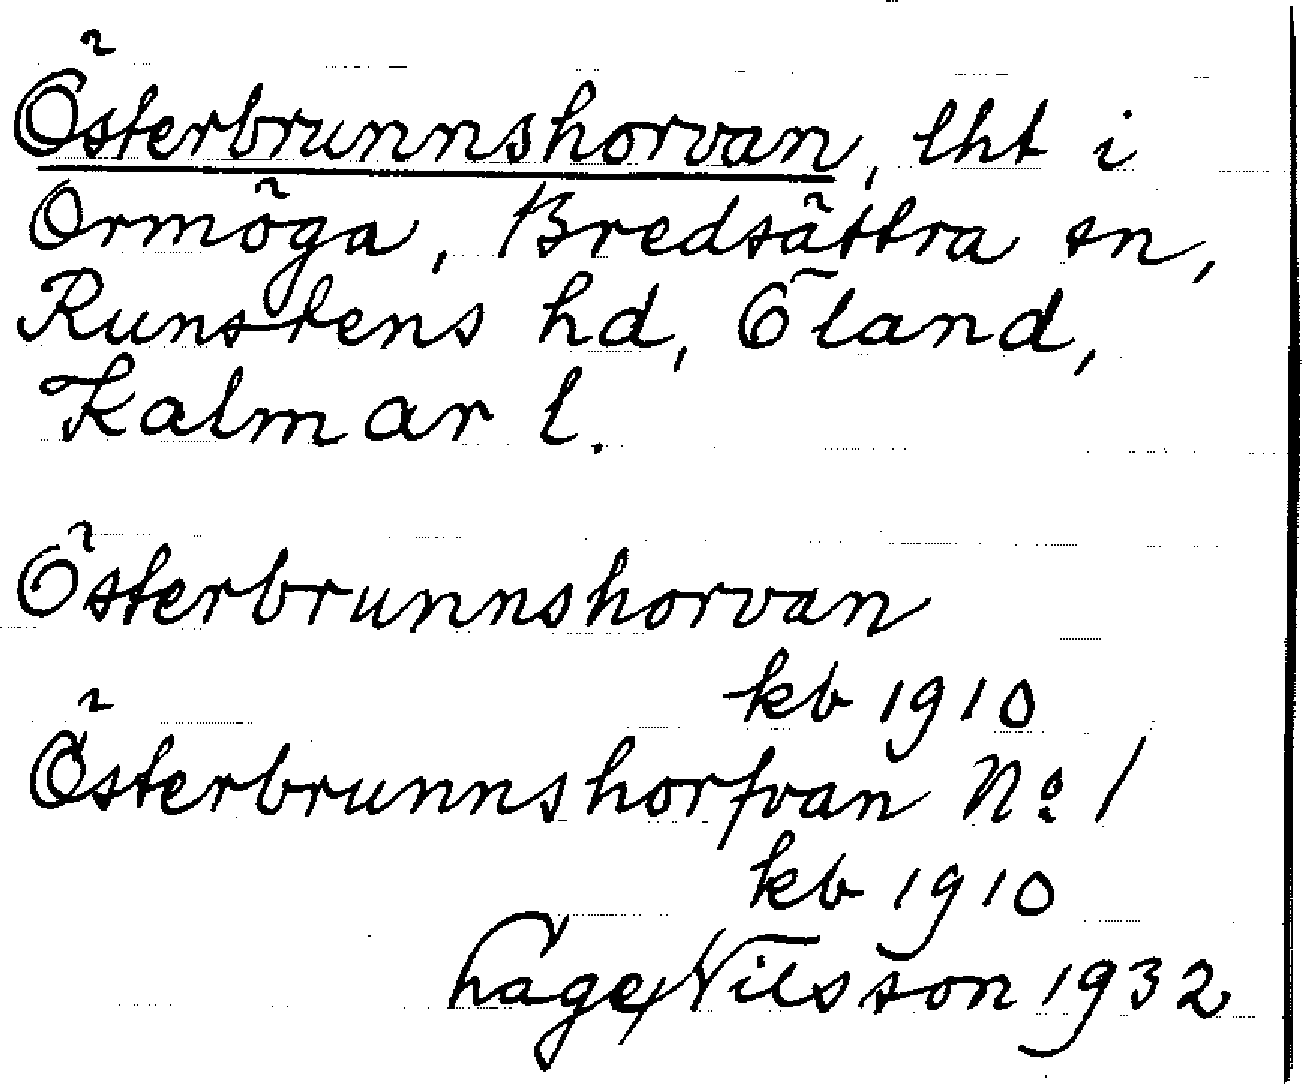 Österbrunnshorvan, lht i
Ormöga, Bredsättra sn,
Runstens hd, Öland,
Kalmar l.
Österbrunnshorvan
kb 1910
Österbrunnshorfvan No 1
kb 1910
Håge Nilsson 1932